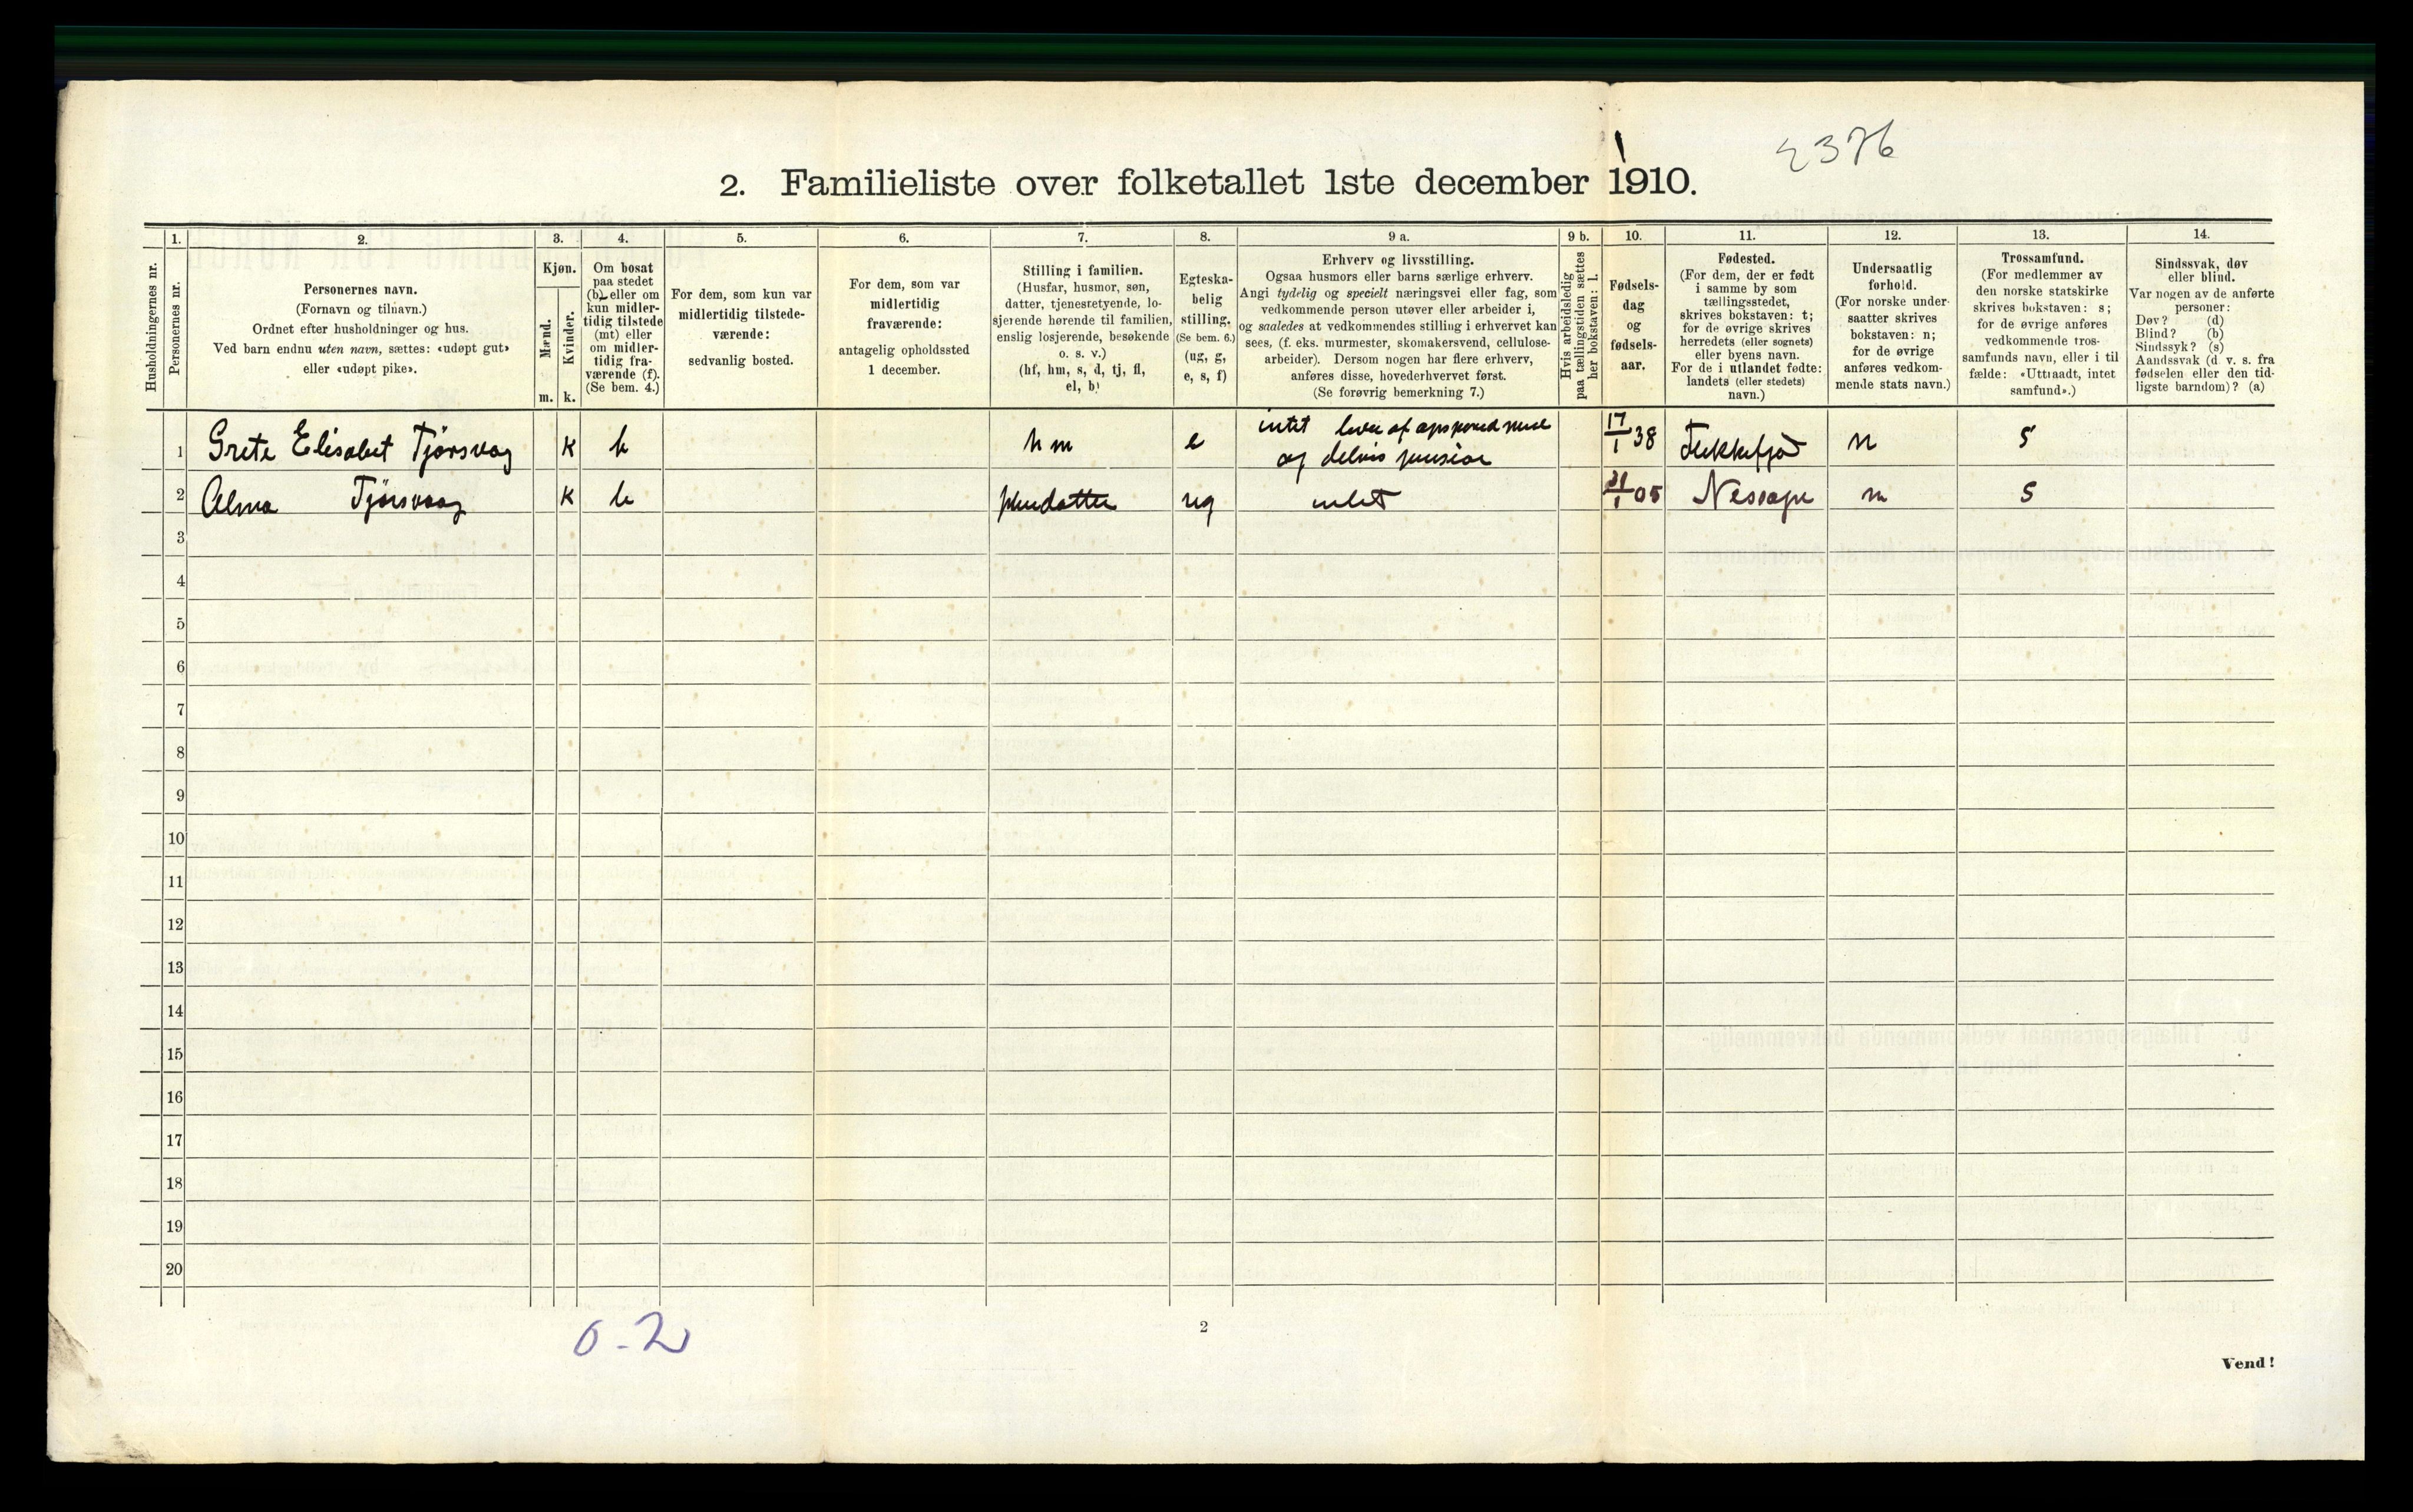 2376
2. Familieliste over folketallet 1ste december 1910.
Husholdningernes nr.
1.
Personernes nr.
2.
Personernes navn.
(Fornavn og tilnavn.)
Ordnet efter husholdninger og hus.
Ved barn endnu uten navn, sættes: «udøpt gut»
eller «udøpt pike».
3.
Kjøn.
Mænd.
Kvinder.
m. k.
4.
Om bosat
paa stedet
(b) eller om
kun midler-
tidig tilstede
(mt) eller
om midler-
tidig fra-
værende (f).
(Se bem. 4.)
5.
For dem, som kun var
midlertidig tilstede-
værende:
sedvanlig bosted.
6.
For dem, som var
midlertidig
fraværende:
antagelig opholdssted
1 december.
7.
Stilling i familien.
(Husfar, husmor, søn,
datter, tjenestetyende, lo-
sjerende hørende til familien,
enslig losjerende, besøkende
o. s. v.)
(hf, hm, s, d, tj, fl,
el, b)
8.
Egteska-
belig
stilling.
(Se bem. 6.)
(ug, g,
e, s, f)
9 a.
Erhverv og livsstilling.
Ogsaa husmors eller barns særlige erhverv.
Angi tydelig og specielt næringsvei eller fag, som
vedkommende person utøver eller arbeider i,
og saaledes at vedkommendes stilling i erhvervet kan
sees, (f. eks. murmester, skomakersvend, cellulose-
arbeider). Dersom nogen har flere erhverv,
anføres disse, hovederhvervet først.
(Se forøvrig bemerkning 7.)
9 b.
Hvis arbeidsledig
paa tællingstiden sættes
her bokstaven: l.
10.
Fødsels-
dag
og
fødsels-
aar.
11.
Fødested.
(For dem, der er født
i samme by som
tællingsstedet,
skrives bokstaven: t;
for de øvrige skrives
herredets (eller sognets)
eller byens navn.
For de i utlandet fødte:
landets (eller stedets)
navn.)
12.
Undersaatlig
forhold.
(For norske under-
saatter skrives
bokstaven: n;
for de øvrige
anføres vedkom-
mende stats navn.)
13.
Trossamfund.
(For medlemmer av
den norske statskirke
skrives bokstaven: s;
for de øvrige anføres
vedkommende tros-
samfunds navn, eller i til
fælde: «Uttraadt, intet
samfund».)
14.
Sindssvak, døv
eller blind.
Var nogen av de anførte
personer:
Døv? (d)
Blind? (b)
Sindssyk? (s)
Aandssvak (d. v. s. fra
fødselen eller den tid-
ligste barndom)? (a)
1 Grete Elisabet Tjørsvag K b hm e intet lever af opsparedmidl og delvis pension 17/1 38 Flekkefjord n s
2 Alma Tjørsvaag K b pleiedatter ug intet 31/1 05 n s
3
4
5
6
7
8
9
10
11
12
13
14
15
16
17
18
19
20
0-2
2
Vend!